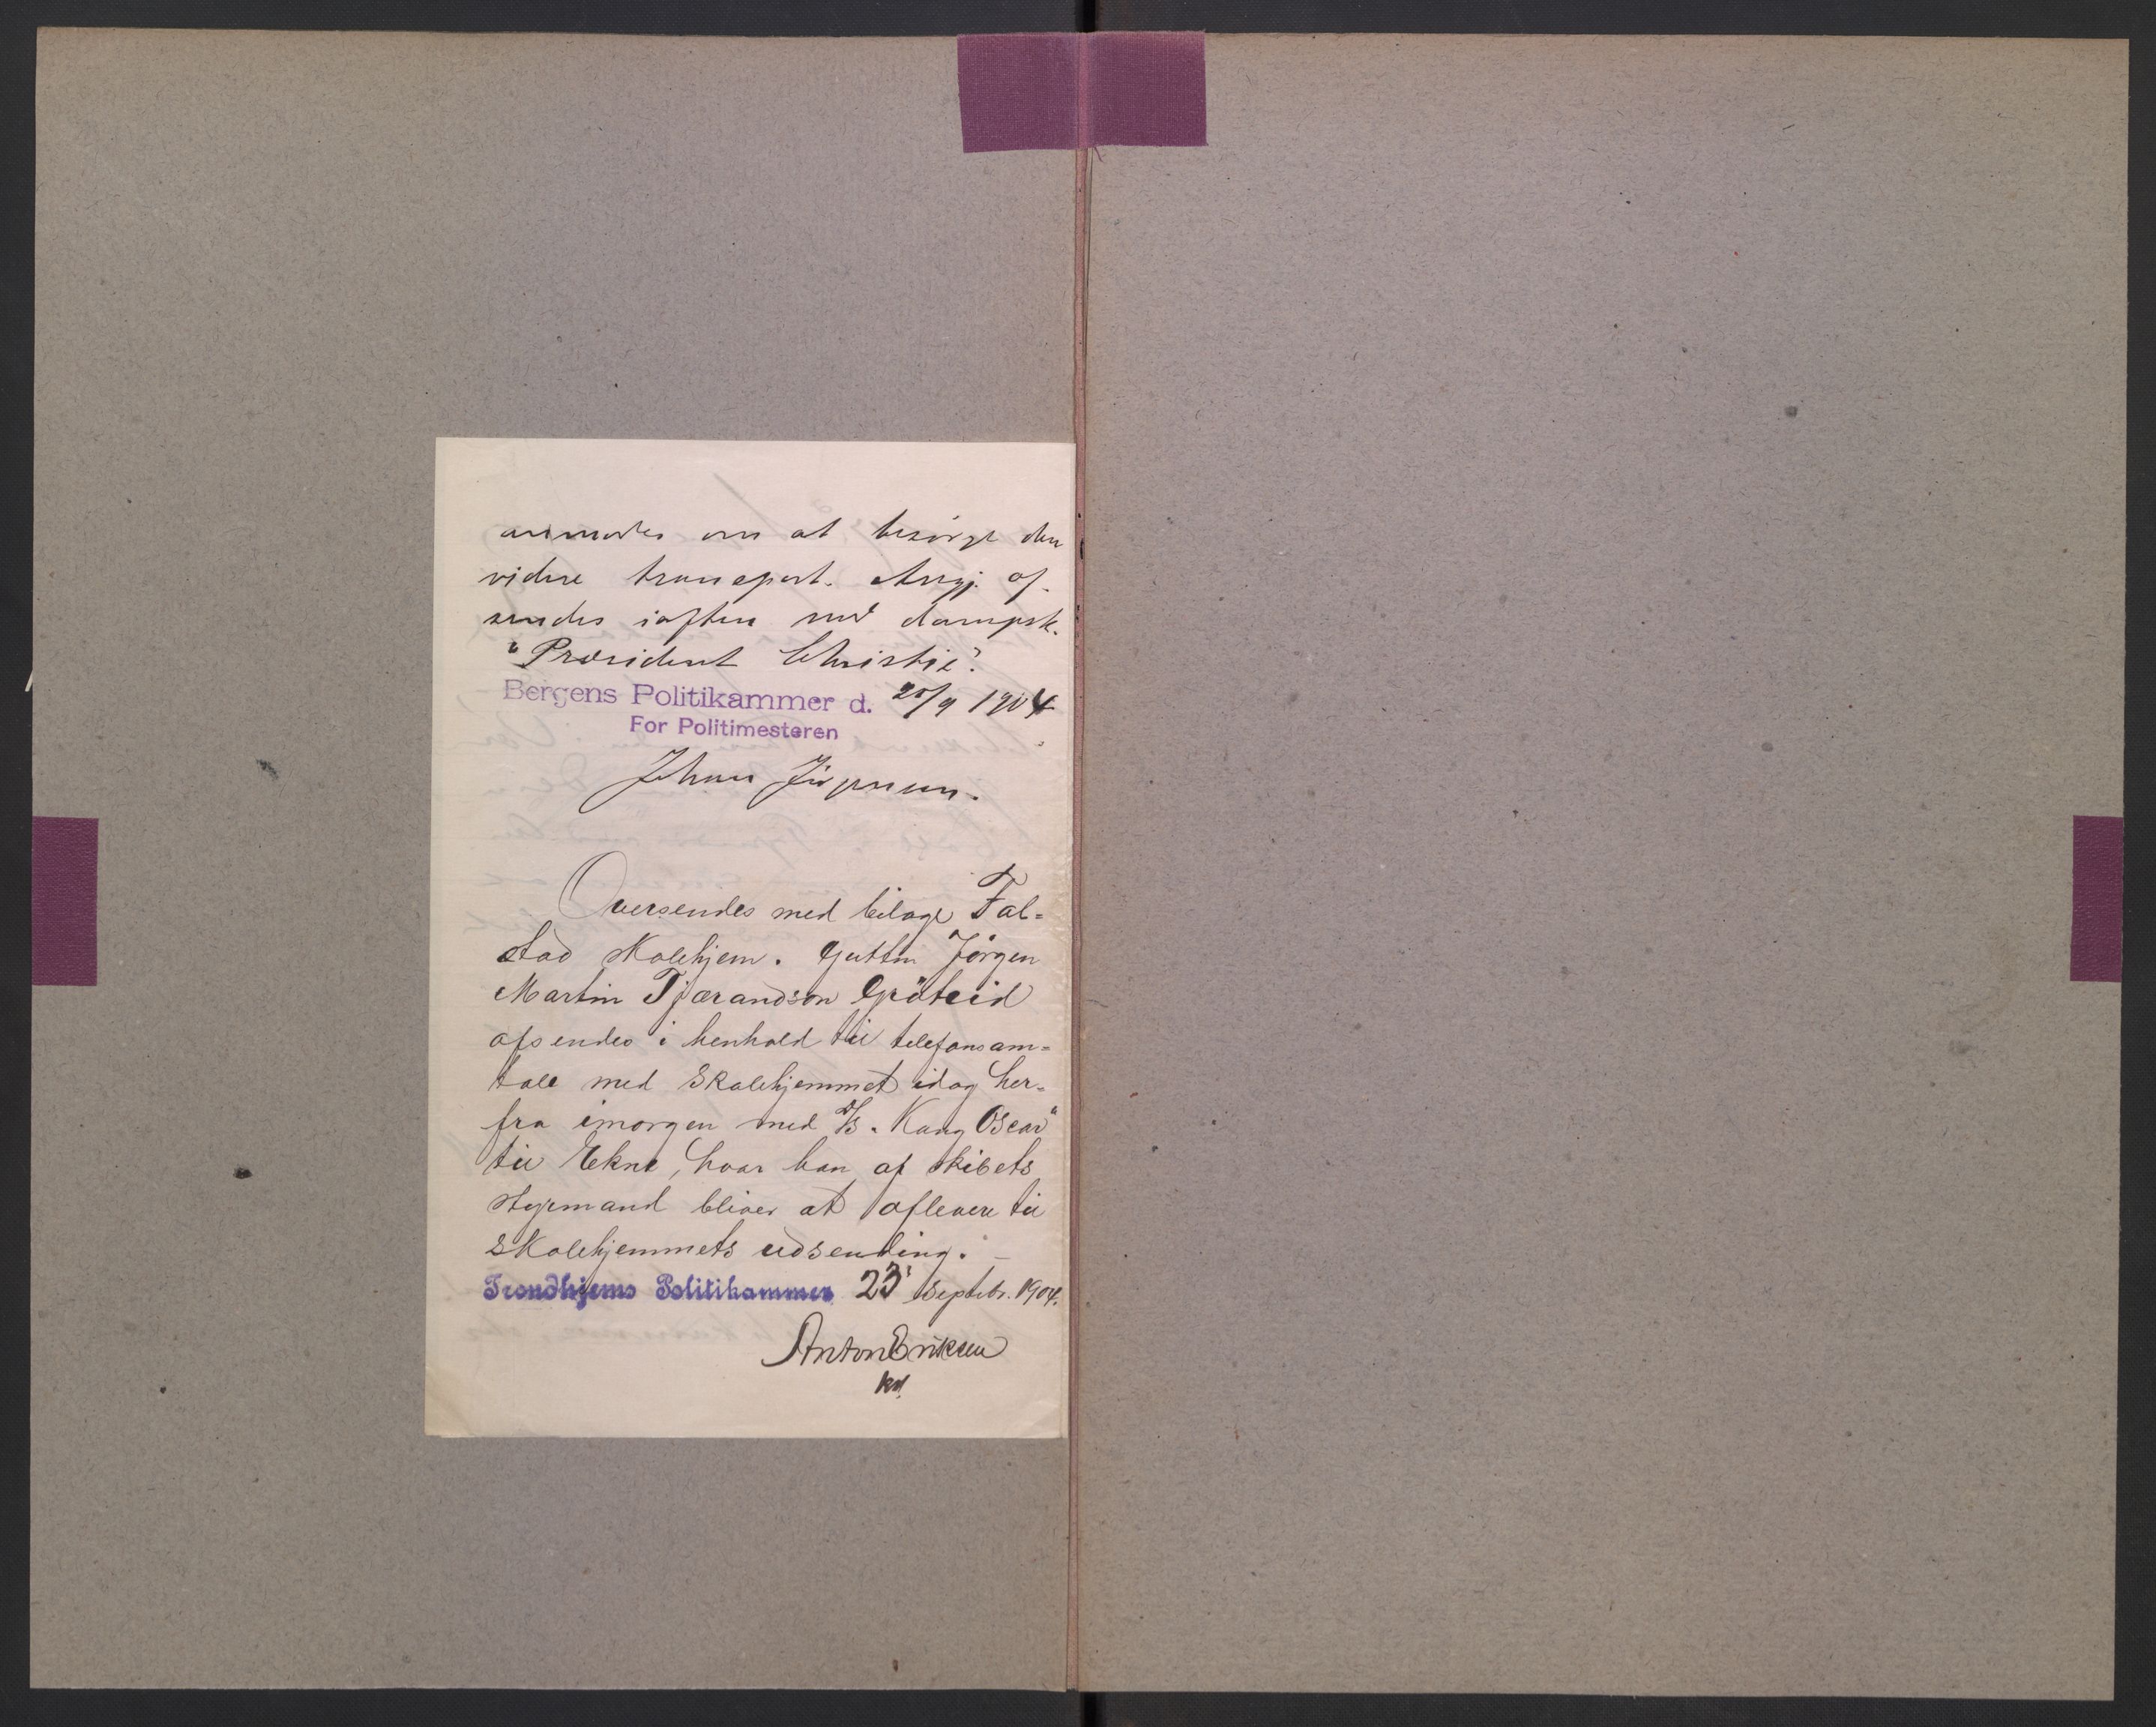 anmodes om at besørge den
videre transport. Angj. af-
sendes iaften med dampsk.
"Præsident Christie".
Bergens Politikammer d. 20/9 1904
For Politimesteren
Oversendes med bilage Fal=
stad skolehjem. Gutten Jörgen
Martin Tjærandson Gröteid
afsendes i henhold til telefonsam=
tale med Skolehjemmet idag her=
fra imorgen med D/S. "Kong Oscar"
til Ekne, hvor han af skibets
styrmand bliver at aflevere til
Skolehjemmets udsending. —
Trondhjems Politikammer 23' Septbr. 1904.
Anton Eriksen